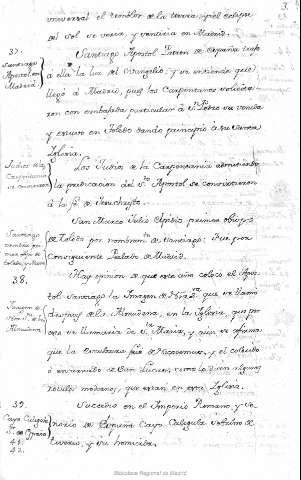 3.
universal el temblor de la tierra y del eclipse
del sol se veria y sentiria en Madrid.
37.
Santiago Apostol en Madrid
Santiago Apostol Patron de España trajo
a ella la luz del Evangelio, y se entiende que
llegó á Madrid, pues los Carpentanos
con embajada particular á Sn. Pedro su venida
y estuvo en Toledo dando principio á su Santa
Iglesia.
Judios de la Carpentania se convierten
Los Judios de la Carpentania admitiendo
la predicacion del Sto. Apostol se convirtieron
á la fé de Jesuchristo.
Santiago
San Marco Julio primer obispo
de Toledo por nombramto. de Santiago: Fue por
consiguiente Prelado de Madrid.
38.
Imagen de Ntra. Sra. de la Almudena
Hay opinion de que este año colocó el Apos-
tol Santiago la Imagen de Ntra. Sra. que se llamó
despues de la Almudena, en la Iglesia, que por
eso se llamaria de Sta. Maria, y aun se afirma
que la escultura fue de Nicodemus, y el colorido
ó encarnado de San Lucas; como lo dicen algunos
rotulos modernos, que estan en esta Iglesia.
39.
Cayo Caligula Sr. de España
41.
42.
Sucedio en el Imperio Romano, y Se-
ñorio de España Cayo Caligula sobrino de
Tiverio, y su homicida.
Biblioteca Regional de Madrid